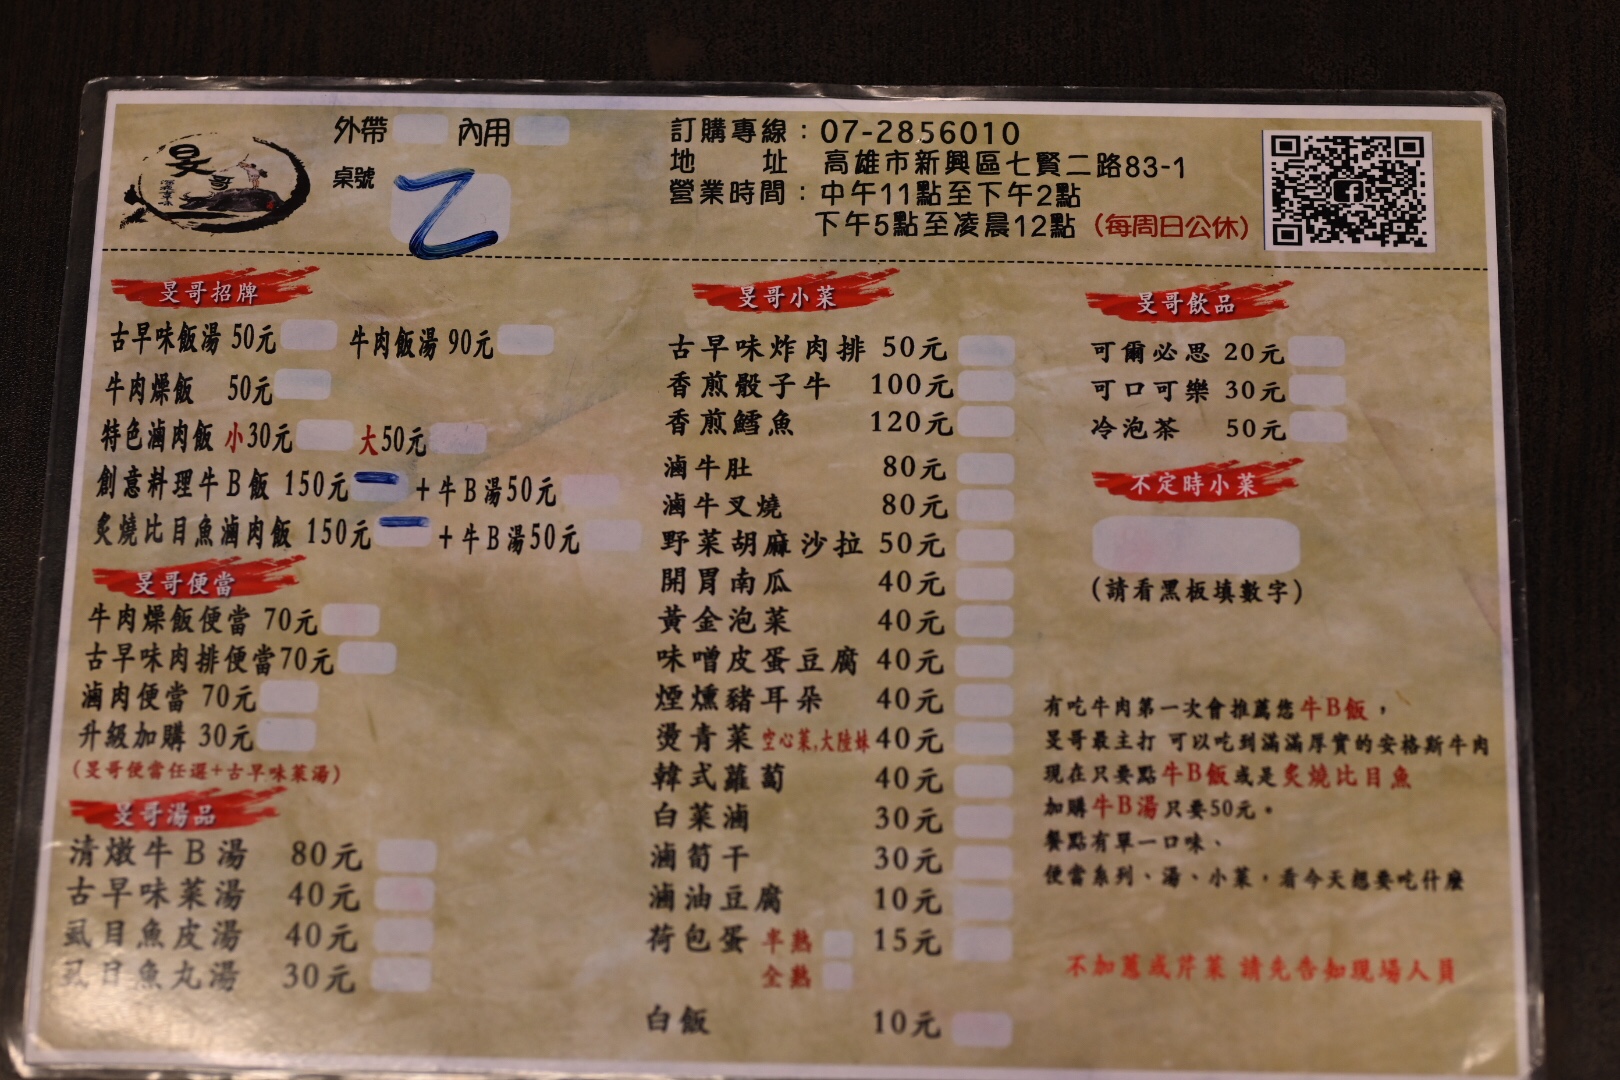 旻哥
外帶 內用
桌號 乙
訂購專線：07-2856010
地 址 高雄市新興區七賢二路83-1
營業時間：中午11點至下午2點
下午5點至凌晨12點（每周日公休）
旻哥招牌
古早味飯湯 50元 牛肉飯湯 90元
牛肉燥飯 50元
特色滷肉飯 小30元 大50元
創意料理牛B飯 150元 ＋牛B湯50元
炙燒比目魚滷肉飯 150元 ＋牛B湯50元
旻哥便當
牛肉燥飯便當 70元
古早味肉排便當70元
滷肉便當 70元
升級加購 30元
（旻哥便當任選+古早味菜湯）
旻哥湯品
清燉牛B湯 80元
古早味菜湯 40元
虱目魚皮湯 40元
虱目魚丸湯 30元
旻哥小菜
古早味炸肉排 50元
香煎骰子牛 100元
香煎鱈魚 120元
滷牛肚 80元
滷牛叉燒 80元
野菜胡麻沙拉 50元
開胃南瓜 40元
黃金泡菜 40元
味噌皮蛋豆腐 40元
煙燻豬耳朵 40元
燙青菜 空心菜,大陸妹 40元
韓式蘿蔔 40元
白菜滷 30元
滷筍干 30元
滷油豆腐 10元
荷包蛋 半熟 15元
全熟
白飯 10元
旻哥飲品
可爾必思 20元
可口可樂 30元
冷泡茶 50元
不定時小菜
（請看黑板填數字）
有吃牛肉第一次會推薦您牛B飯，
旻哥最主打 可以吃到滿滿厚實的安格斯牛肉
現在只要點牛B飯或是炙燒比目魚
加購牛B湯只要50元。
餐點有單一口味、
便當系列、湯、小菜，看今天想要吃什麼
不加蔥或芹菜 請先告知現場人員